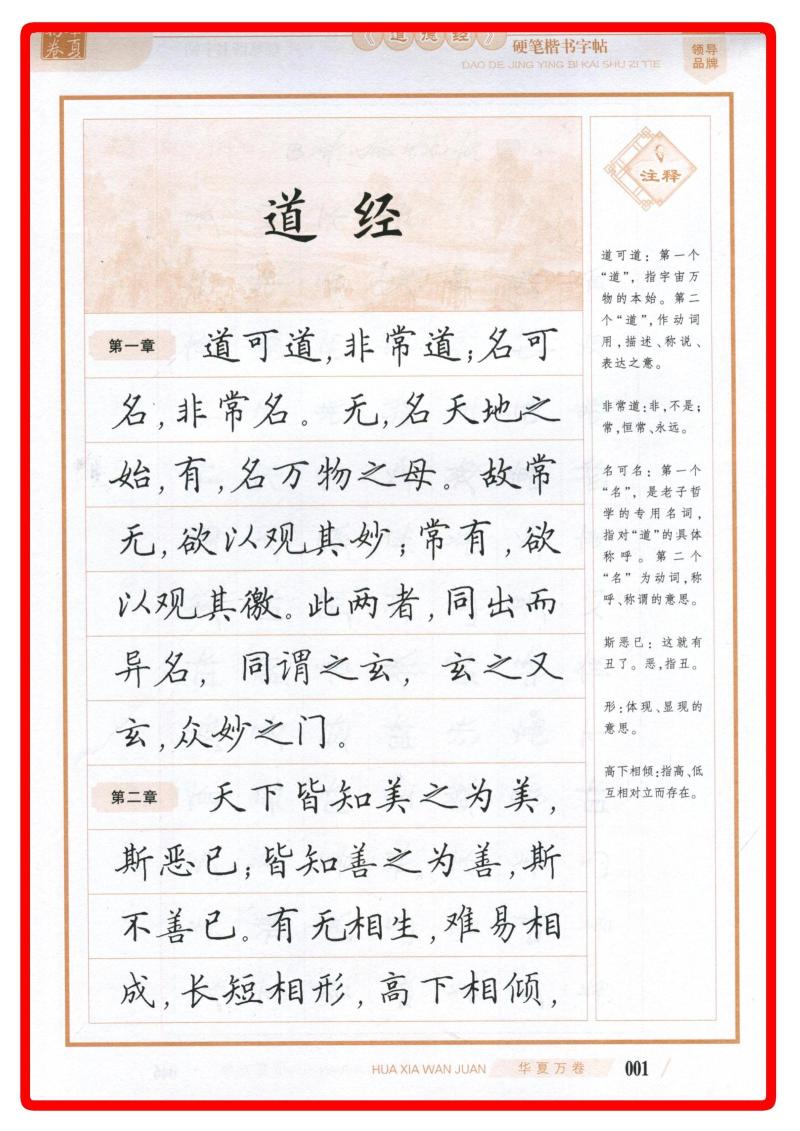 华夏
万卷
《道德经》
硬笔楷书字帖
DAO DE JING YING BI KAI SHU ZI TIE
领导
品牌
道经
第一章
道可道,非常道;名可
名,非常名。无,名天地之
始,有,名万物之母。故常
无,欲以观其妙;常有,欲
以观其徼。此两者,同出而
异名,同谓之玄,玄之又
玄,众妙之门。
第二章
天下皆知美之为美,
斯恶已;皆知善之为善,斯
不善已。有无相生,难易相
成,长短相形,高下相倾,
注释
道可道:第一个
“道”,指宇宙万
物的本始。第二
个“道”,作动词
用,描述、称说、
表达之意。
非常道:非,不是;
常,恒常、永远。
名可名:第一个
“名”,是老子哲
学的专用名词,
指对“道”的具体
称呼。第二个
“名”为动词,称
呼、称谓的意思。
斯恶已:这就有
丑了。恶,指丑。
形:体现、显现的
意思。
高下相倾:指高、低
互相对立而存在。
HUA XIA WAN JUAN
华夏万卷
001